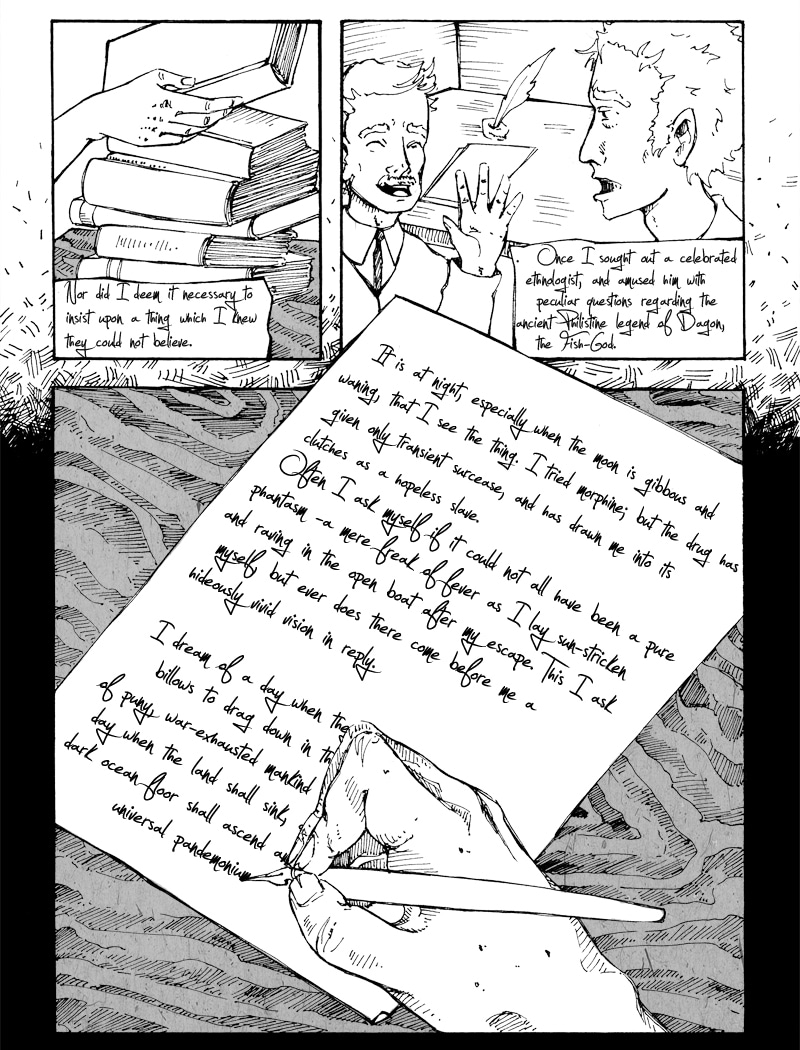 Nor did I deem it necessary to
insist upon a thing which I knew
they could not believe.
Once I sought out a celebrated
ethnologist, and amused him with
peculiar questions regarding the
ancient Philistine legend of Dagon,
the Fish-God.
It is at night, especially when the moon is gibbous and
waning, that I see the thing. I tried morphine; but the drug has
given only transient surcease, and has drawn me into its
clutches as a hopeless slave.
Often I ask myself if it could not all have been a pure
phantasm -a mere freak of fever as I lay sun-stricken
and raving in the open boat after my escape. This I ask
myself but ever does there come before me a
hideously vivid vision in reply.
I dream of a day when they
billows to drag down in th
of puny, war-exhausted mankind
day when the land shall sink,
dark ocean floor shall ascend a
universal pandemonium